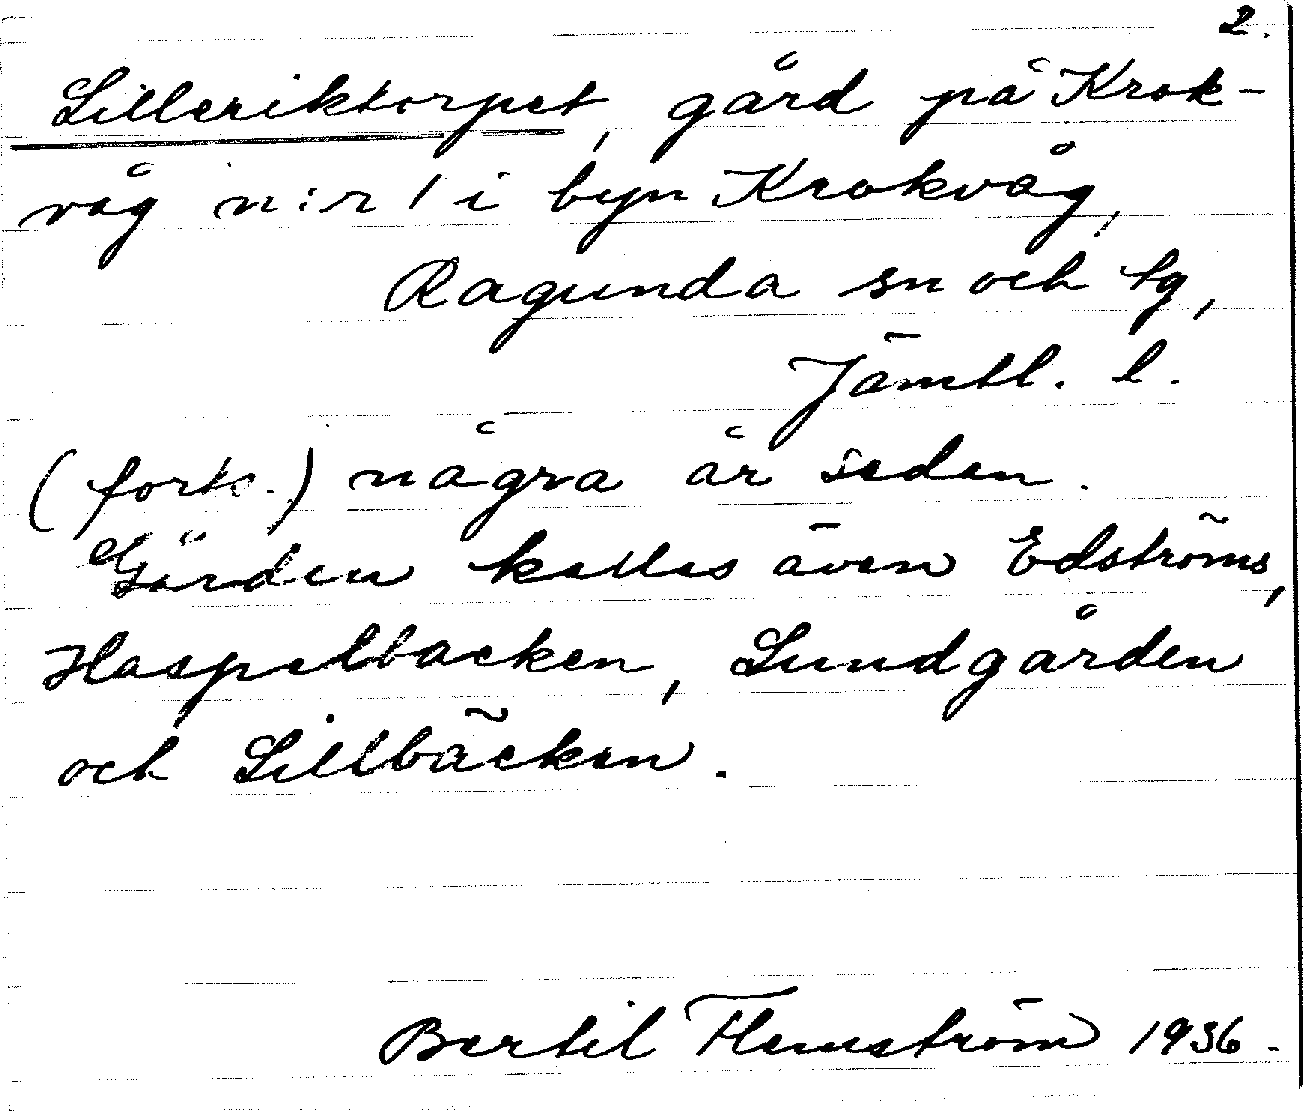 2.
Lilleriktorpet, gård på Krok-
våg n:r 1 i byn Krokvåg,
Ragunda sn och tg,
Jämtl. l.
(forts.) några år sedan.
Gården kallas även Edströms,
Haspelbacken, Lundgården
och Lillbäcken.
Bertil Flemström 1936.